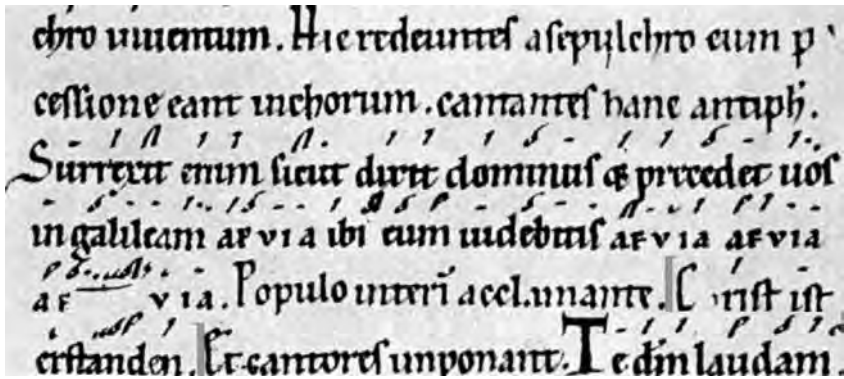 chro uiuentium. Hi e redeuntes a sepulchro cum p
cessione eant in chorum. cantantes hanc antiph.
Surrexit enim sicut dixit dominus & precedet uos
in galileam aevia ibi eum uidebitis aevia aevia
ae via. Populo interi acclamante. Crist ist
erstanden. Et cantores imponant. Te dm laudam.